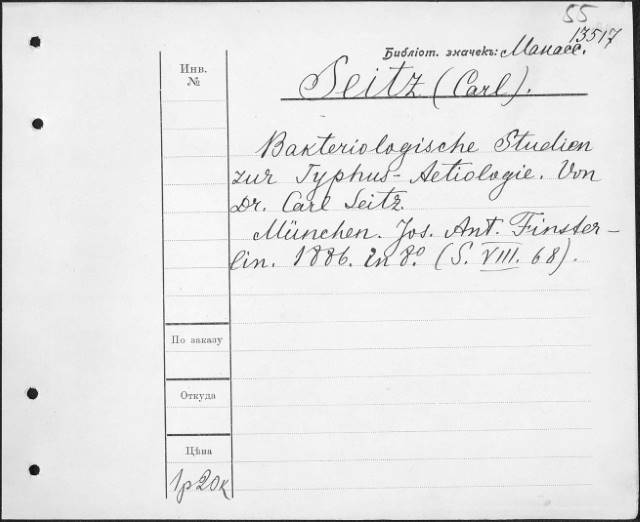 55
13517
Библіот. значекъ: Манасс.
Seitz (Carl).
Инв.
№
Bakteriologische Studien
zur Typhus-Aetiologie. Von
Dr. Carl Seitz.
München. Jos. Ant. Finster-
lin. 1886. in 8.º (S. VIII. 68).
По заказу
Откуда
Цѣна
1р20к